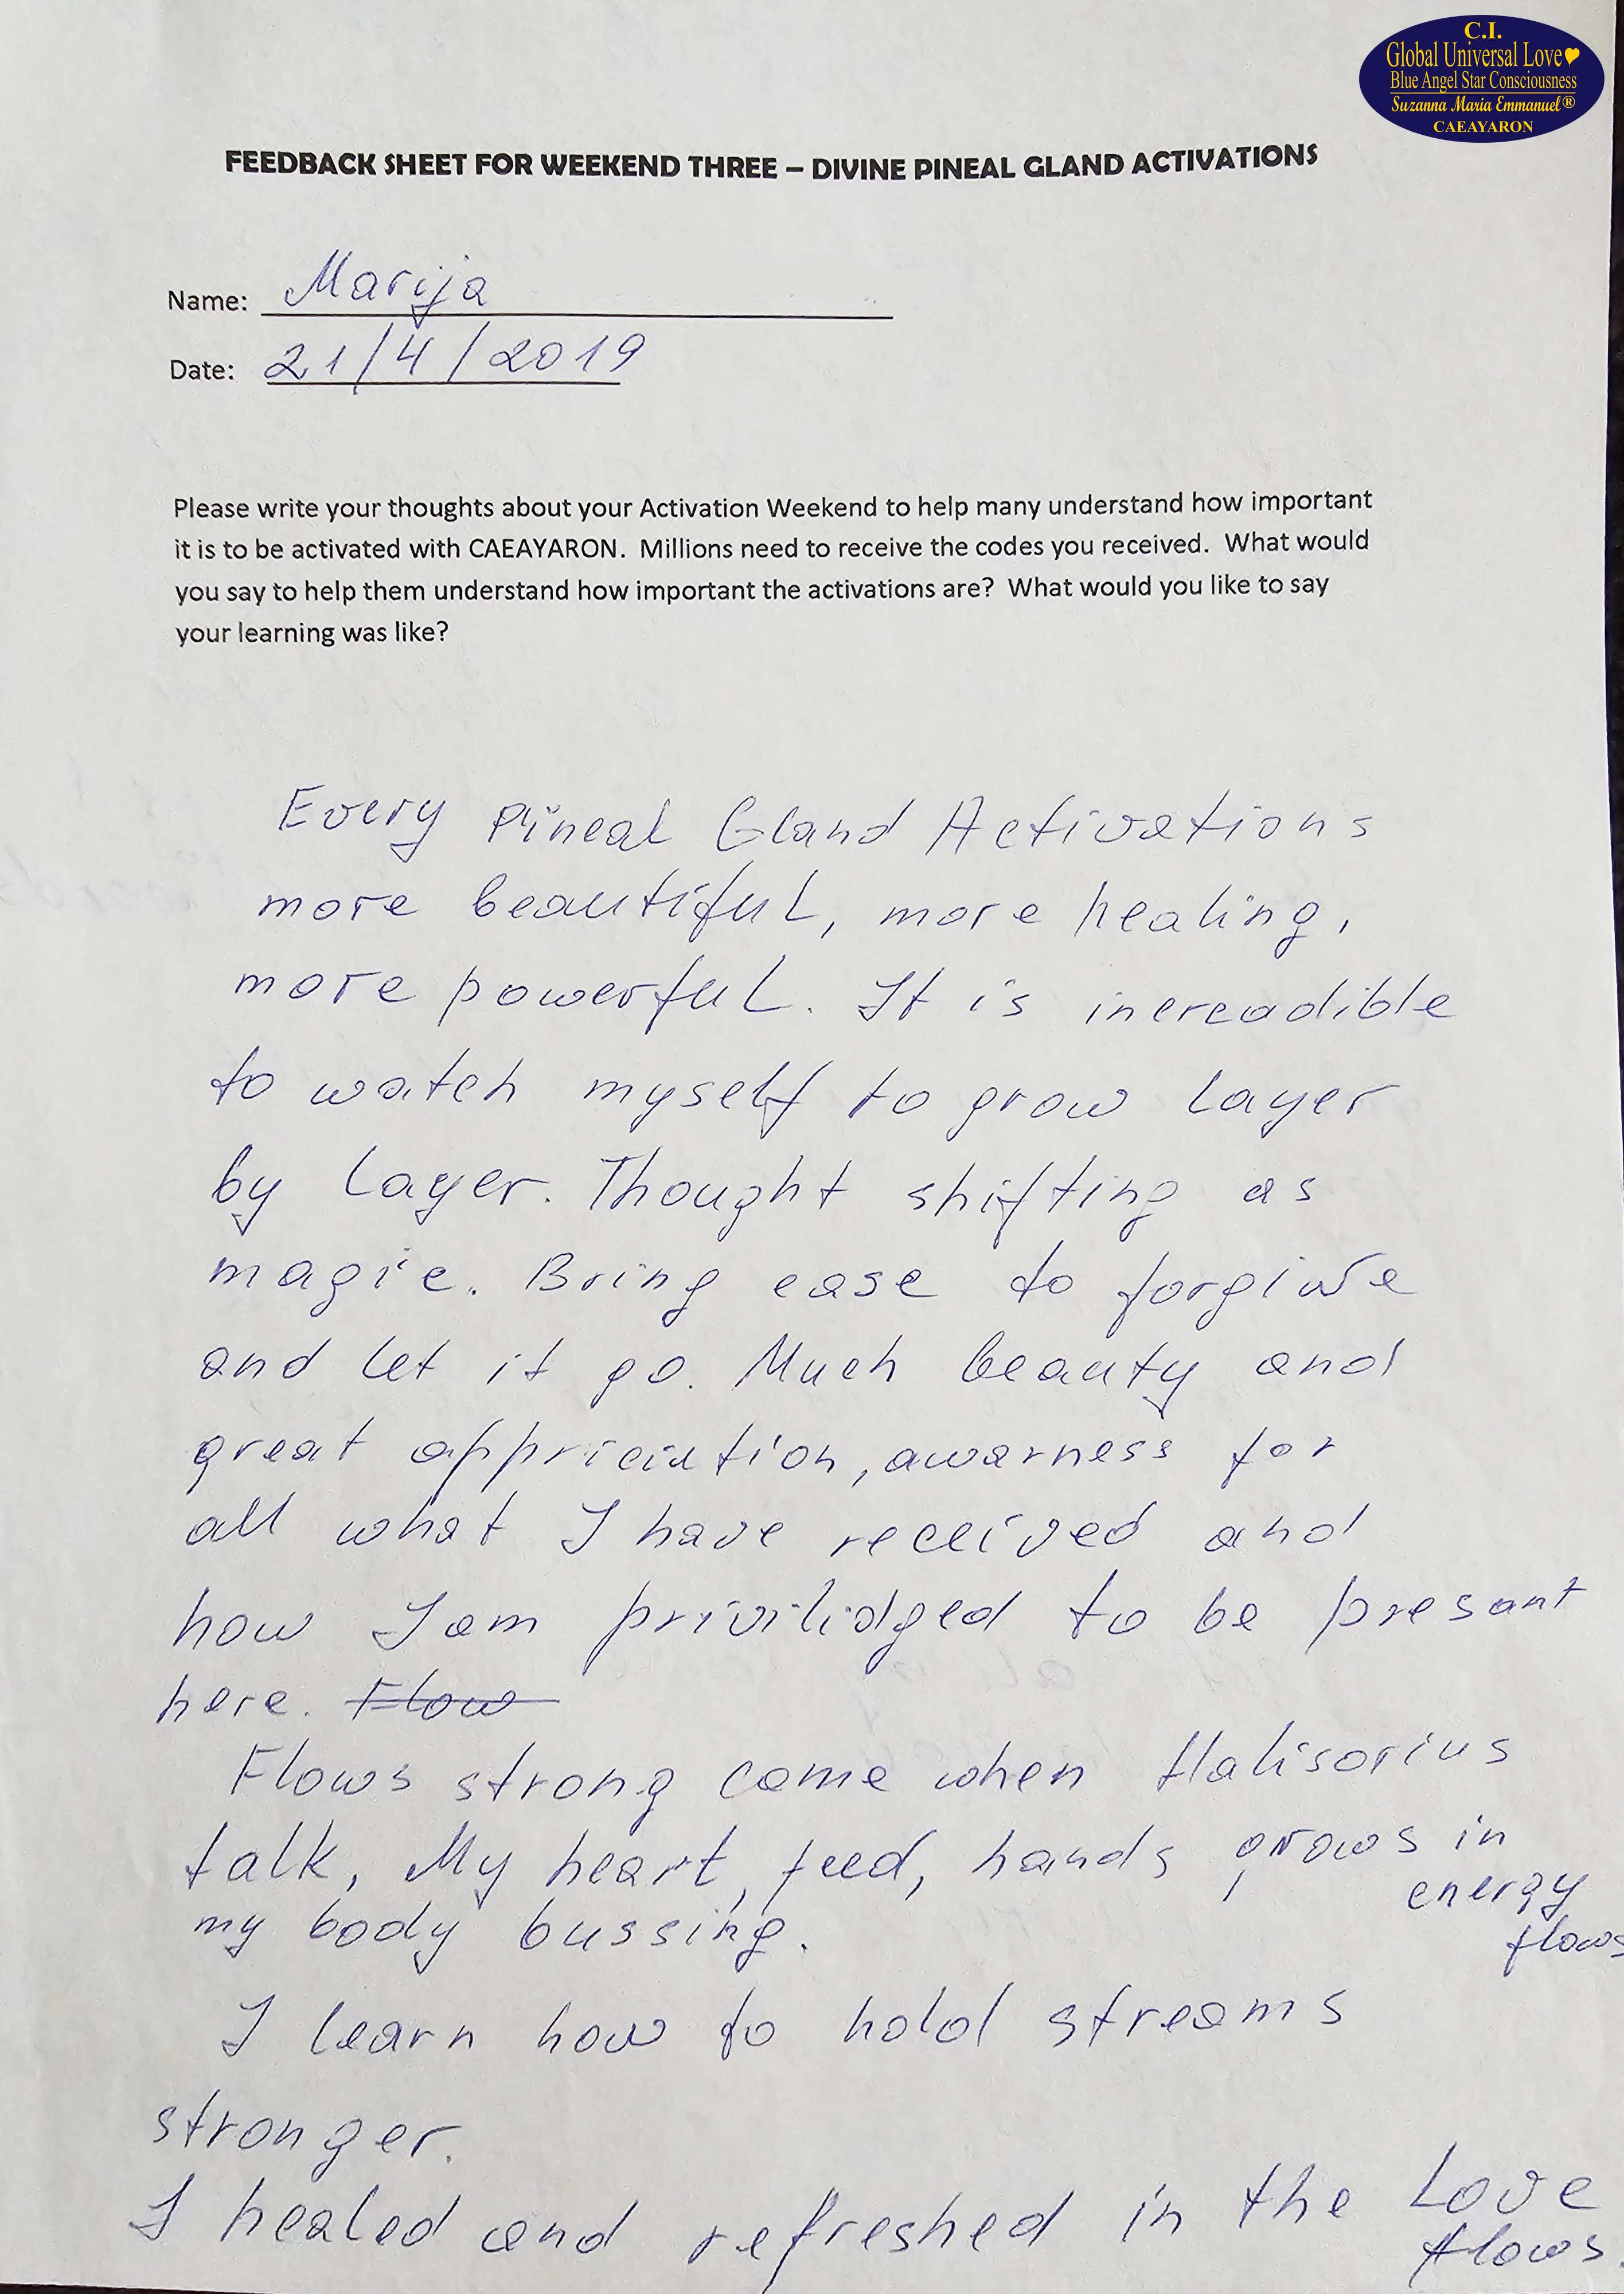 C.I.
Global Universal Love
Blue Angel Star Consciousness
Suzanna Maria Emmanuel®
CAEAYARON
FEEDBACK SHEET FOR WEEKEND THREE – DIVINE PINEAL GLAND ACTIVATIONS
Name: Marija
Date: 21/4/2019
Please write your thoughts about your Activation Weekend to help many understand how important
it is to be activated with CAEAYARON. Millions need to receive the codes you received. What would
you say to help them understand how important the activations are? What would you like to say
your learning was like?
Every Pineal Gland Activations
more beautiful, more healing,
more powerful. It is increadible
to watch myself to grow layer
by layer. Thought shifting as
magic. Bring ease to forgive
and let it go. Much beauty and
great appriciation, awarness for
all what I have received and
how I am privilidged to be presant
here. Flow
Flows strong come when Halisorius
talk. My heart, feed, hands grows in
energy
flows
my body bussing.
I learn how to hold streams
stronger.
I healed and refreshed in the Love
flows.